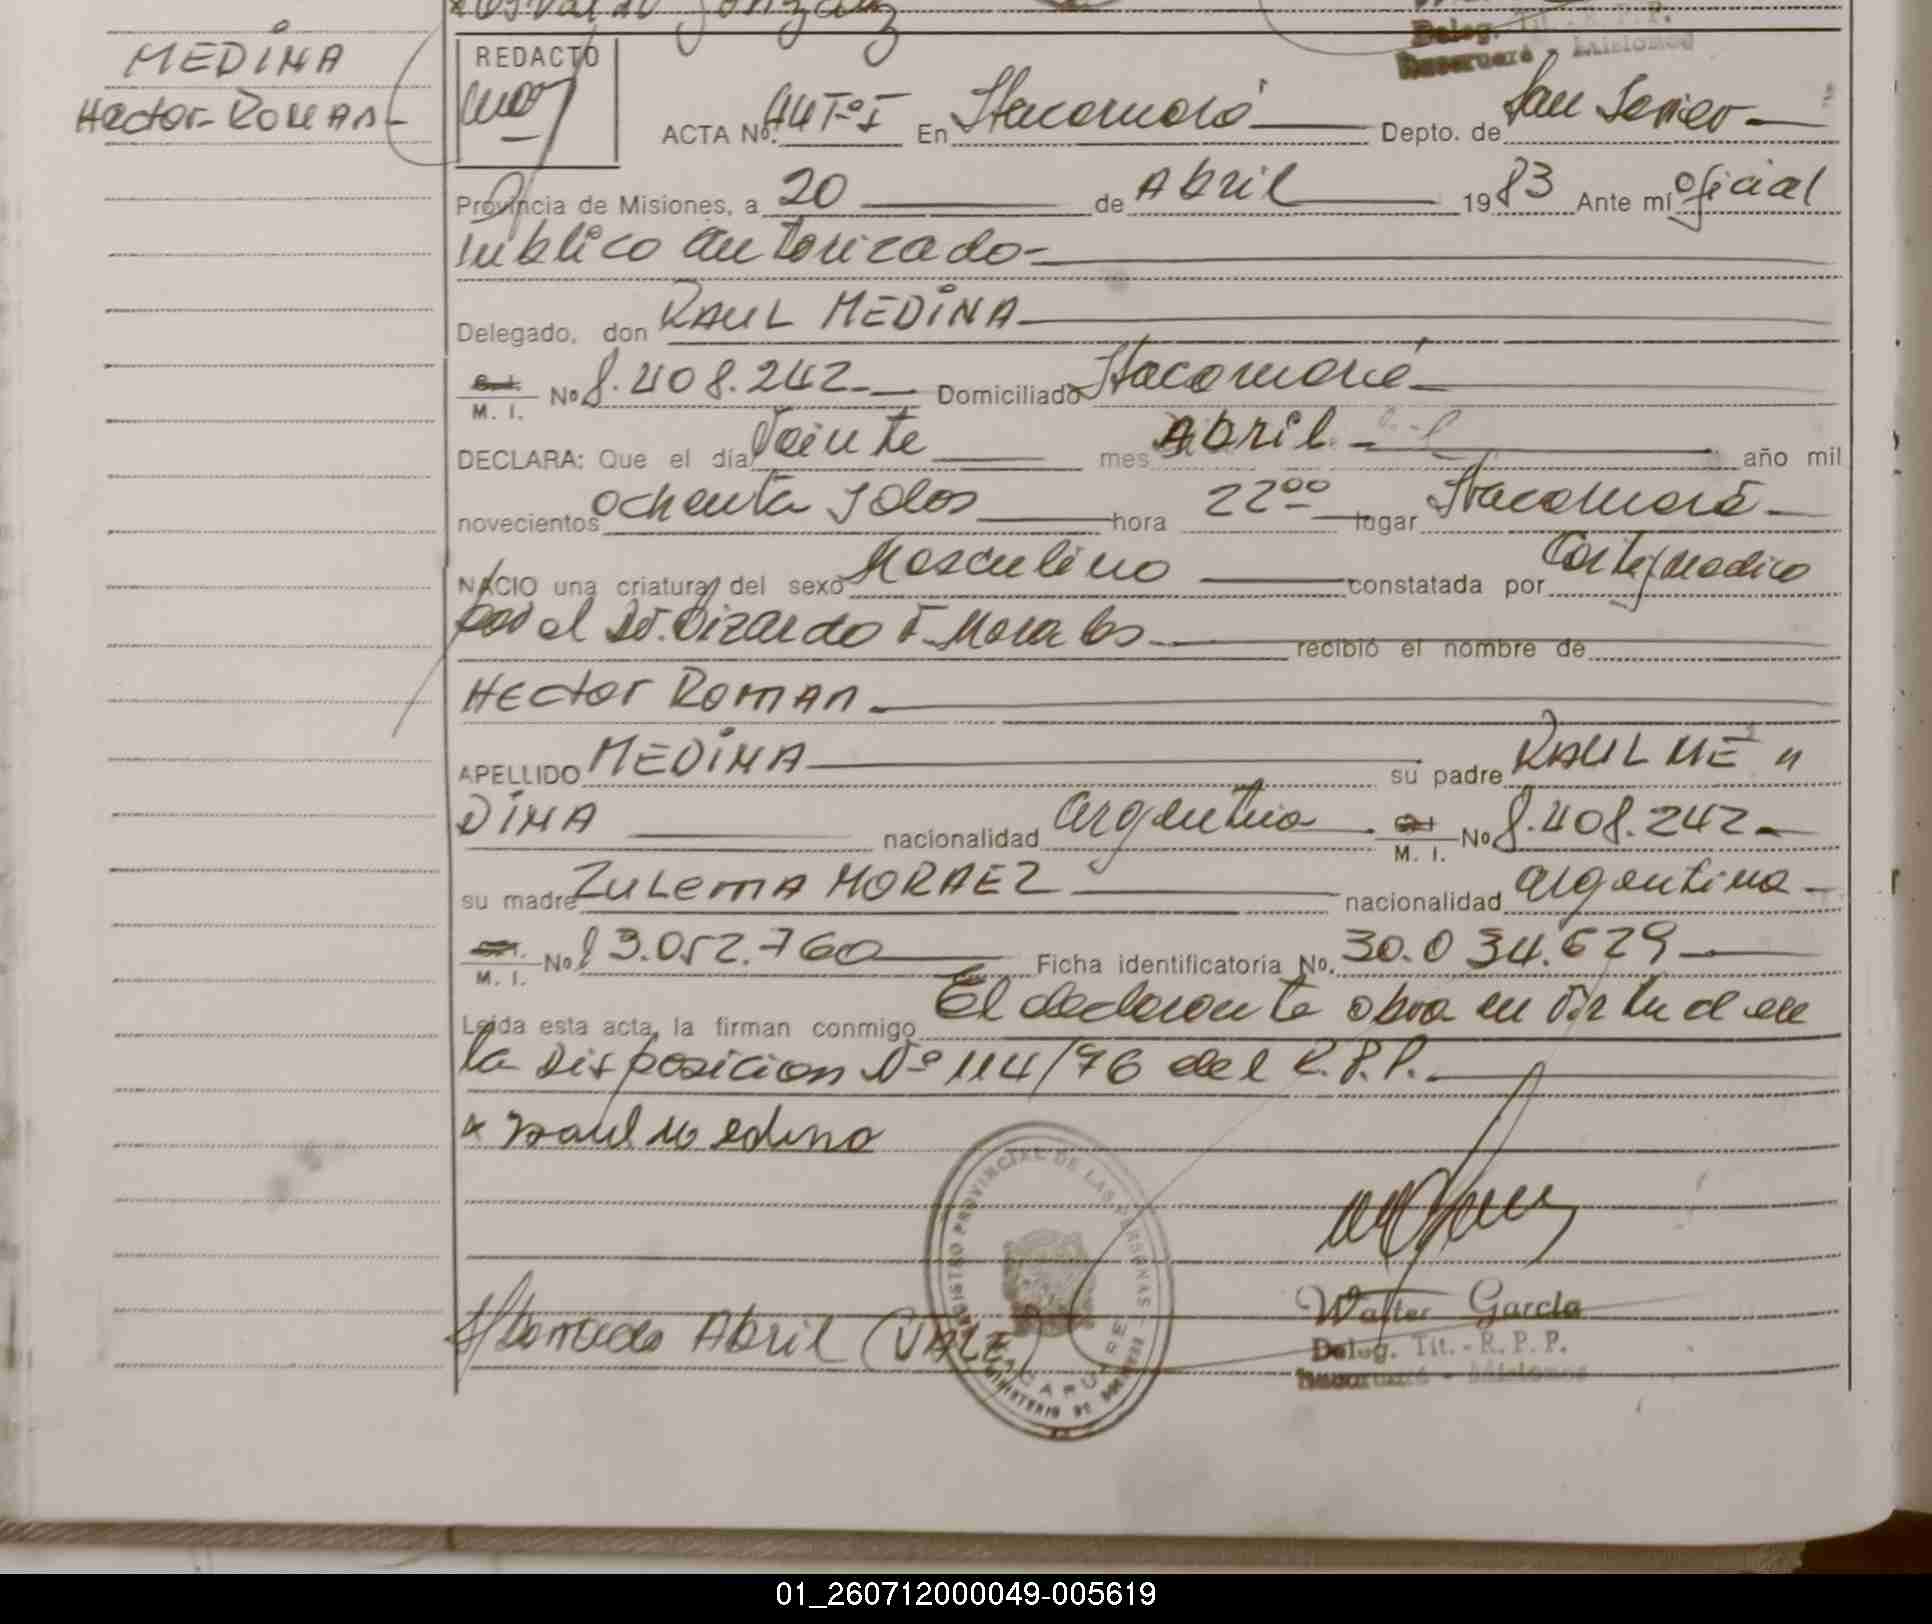 MEDINA
Hector Roman
REDACTO
ACTA No. 44 Tº I En Itacaruaré Depto. de San Javier
Provincia de Misiones, a 20 de Abril 1983 Ante mí Oficial
Publico autorizado
Delegado, don RAUL MEDINA
M. I. No 8.408.242 Domiciliado Itacaruaré
DECLARA: Que el día Veinte mes Abril año mil
novecientos ochenta y dos hora 22ºº lugar Itacaruaré
NACIO una criatura del sexo Masculino constatada por Cert. medico
por el Dr. F. Morales recibió el nombre de
Hector Roman
APELLIDO MEDINA su padre RAUL ME "
DINA nacionalidad argentina M. I. No 8.408.242
su madre Zulema MORAEZ nacionalidad argentina
M. I. No 13.052.760 Ficha identificatoria No. 30.034.629
Leída esta acta, la firman conmigo El declarante obra en virtud de
la Disposicion Nº 114/76 del R.P.P.
x Raul Medina
REGISTRO PROVINCIAL DE LAS PERSONAS
MINISTERIO DE GOBIERNO
ITACARUARE
Walter García
Deleg. Tit. - R. P. P.
Itacaruaré - Misiones
Abril (VALE)
01_260712000049-005619